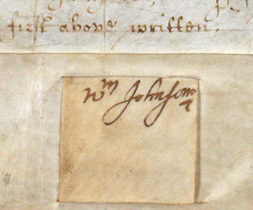 first above written.
Wm Johnson